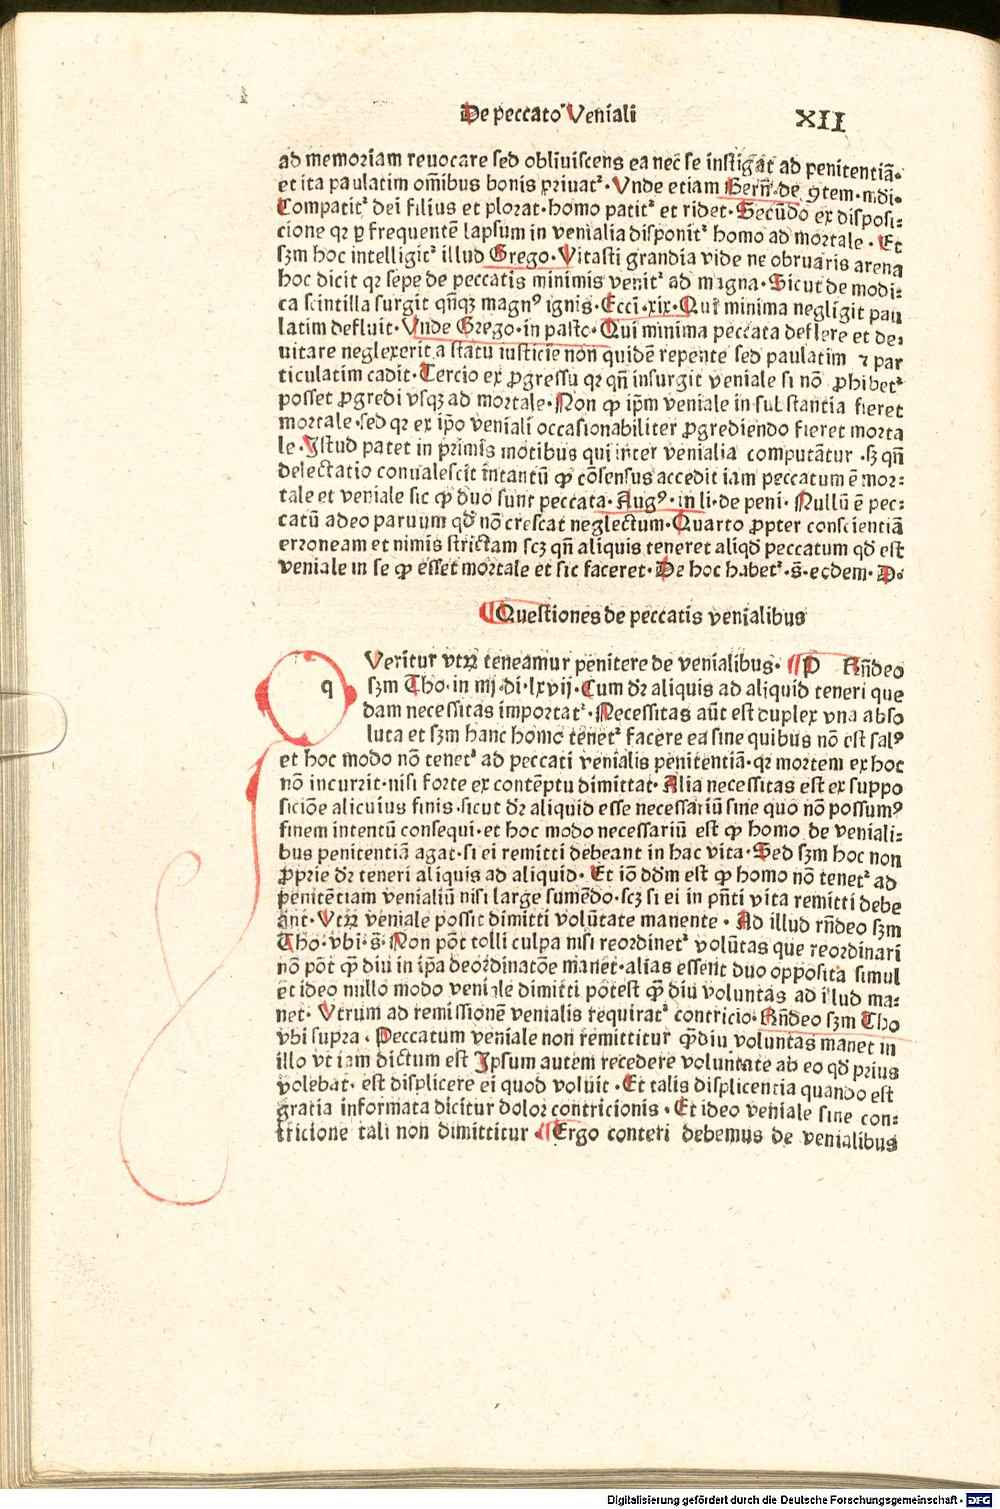 De peccato Veniali
XII
ad memoriam reuocare sed obliuiscens ea nec se instigat ad penitentiā·
et ita paulatim om̄ibus bonis priuatꝛ· Vnde etiam Berñ·de ꝯtem·mdi·
Compatitꝛ dei filius et plorat·homo patitꝛ et ridet· Secūdo ex disposi:
cione qꝛ ꝑ frequentē lapsum in venialia disponitꝛ homo ad mortale · Et
sꝫm hoc intelligitꝛ illud Grego· Vitasti grandia vide ne obruaris arena
hoc dicit qꝛ sepe de peccatis minimis venitꝛ ad magna· Sicut de modi:
ca scintilla surgit qñqꝫ magnꝰ ignis· Ecci·xix· Qui minima negligit pau
latim defluit· Vnde Grego·in pasto· Qui minima peccata deflere et de:
uitare neglexerit a statu iusticie non quidē repente sed paulatim ⁊ par
ticulatim cadit· Tercio ex ꝓgressu qꝛ qñ insurgit veniale si nō ꝓhibetꝛ
posset ꝓgredi vsqꝫ ad mortale· Non ꝙ ip̄m veniale in substantia fieret
mortale·sed qꝛ ex ip̄o veniali occasionabiliter ꝓgrediendo fieret morta
le· Istud patet in primis motibus qui inter venialia computātur ·sꝫ qñ
delectatio conualescit intantū ꝙ cōsensus accedit iam peccatum ē mor:
tale et veniale sic ꝙ duo sunt peccata· Augꝰ·in li·de peni· Nullū ē pec:
catū adeo paruum qd̄ nō crescat neglectum· Quarto ꝓpter conscientiā
erroneam et nimis strictam scꝫ qñ aliquis teneret aliqd̄ peccatum qd̄ est
veniale in se ꝙ esset mortale et sic faceret· De hoc habetꝛ·s̄·eodem· D·
Questiones de peccatis venialibus
q
Veritur vtꝝ teneamur penitere de venialibus· P Rñdeo
sꝫm Tho·in iiij·di·lxvij· Cum dꝛ aliquis ad aliquid teneri que
dam necessitas importatꝛ· Necessitas aūt est duplex vna abso
luta et sꝫm hanc homo tenetꝛ facere ea sine quibus nō est salꝰ
et hoc modo nō tenetꝛ ad peccati venialis penitentiā·qꝛ mortem ex hoc
nō incurrit·nisi forte ex contēptu dimittat· Alia necessitas est ex suppo
siciōe alicuius finis·sicut dꝛ aliquid esse necessariū sine quo nō possumꝰ
finem intentū consequi·et hoc modo necessariū est ꝙ homo de veniali:
bus penitentiā agat·si ei remitti debeant in hac vita· Sed sꝫm hoc non
ꝓprie dꝛ teneri aliquis ad aliquid· Et iō dd̄m est ꝙ homo nō tenetꝛ ad
penitētiam venialiū nisi large sumēdo·scꝫ si ei in pñti vita remitti debe
ant· Vtꝝ veniale possit dimitti volūtate manente · Ad illud rñdeo sꝫm
Tho·vbi·s̄· Non pōt tolli culpa nisi reordinetꝛ volūtas que reordinari
nō pōt ꝙ̄ diu in ip̄a deordinatōe manet·alias essent duo opposita simul
et ideo nullo modo veniale dimitti potest ꝙ̄ diu voluntas ad illud ma:
net· Vtrum ad remissionē venialis requiratꝛ contricio· Rñdeo sꝫm Tho
vbi supra · Peccatum veniale non remittitur ꝙ̄diu voluntas manet in
illo vt iam dictum est Ipsum autem recedere voluntate ab eo qd̄ prius
volebat· est displicere ei quod voluit · Et talis displicentia quando est
gratia informata dicitur dolor contricionis · Et ideo veniale sine con:
tricione tali non dimittitur · Ergo conteri debemus de venialibus
Digitalisierung gefördert durch die Deutsche Forschungsgemeinschaft - DFG